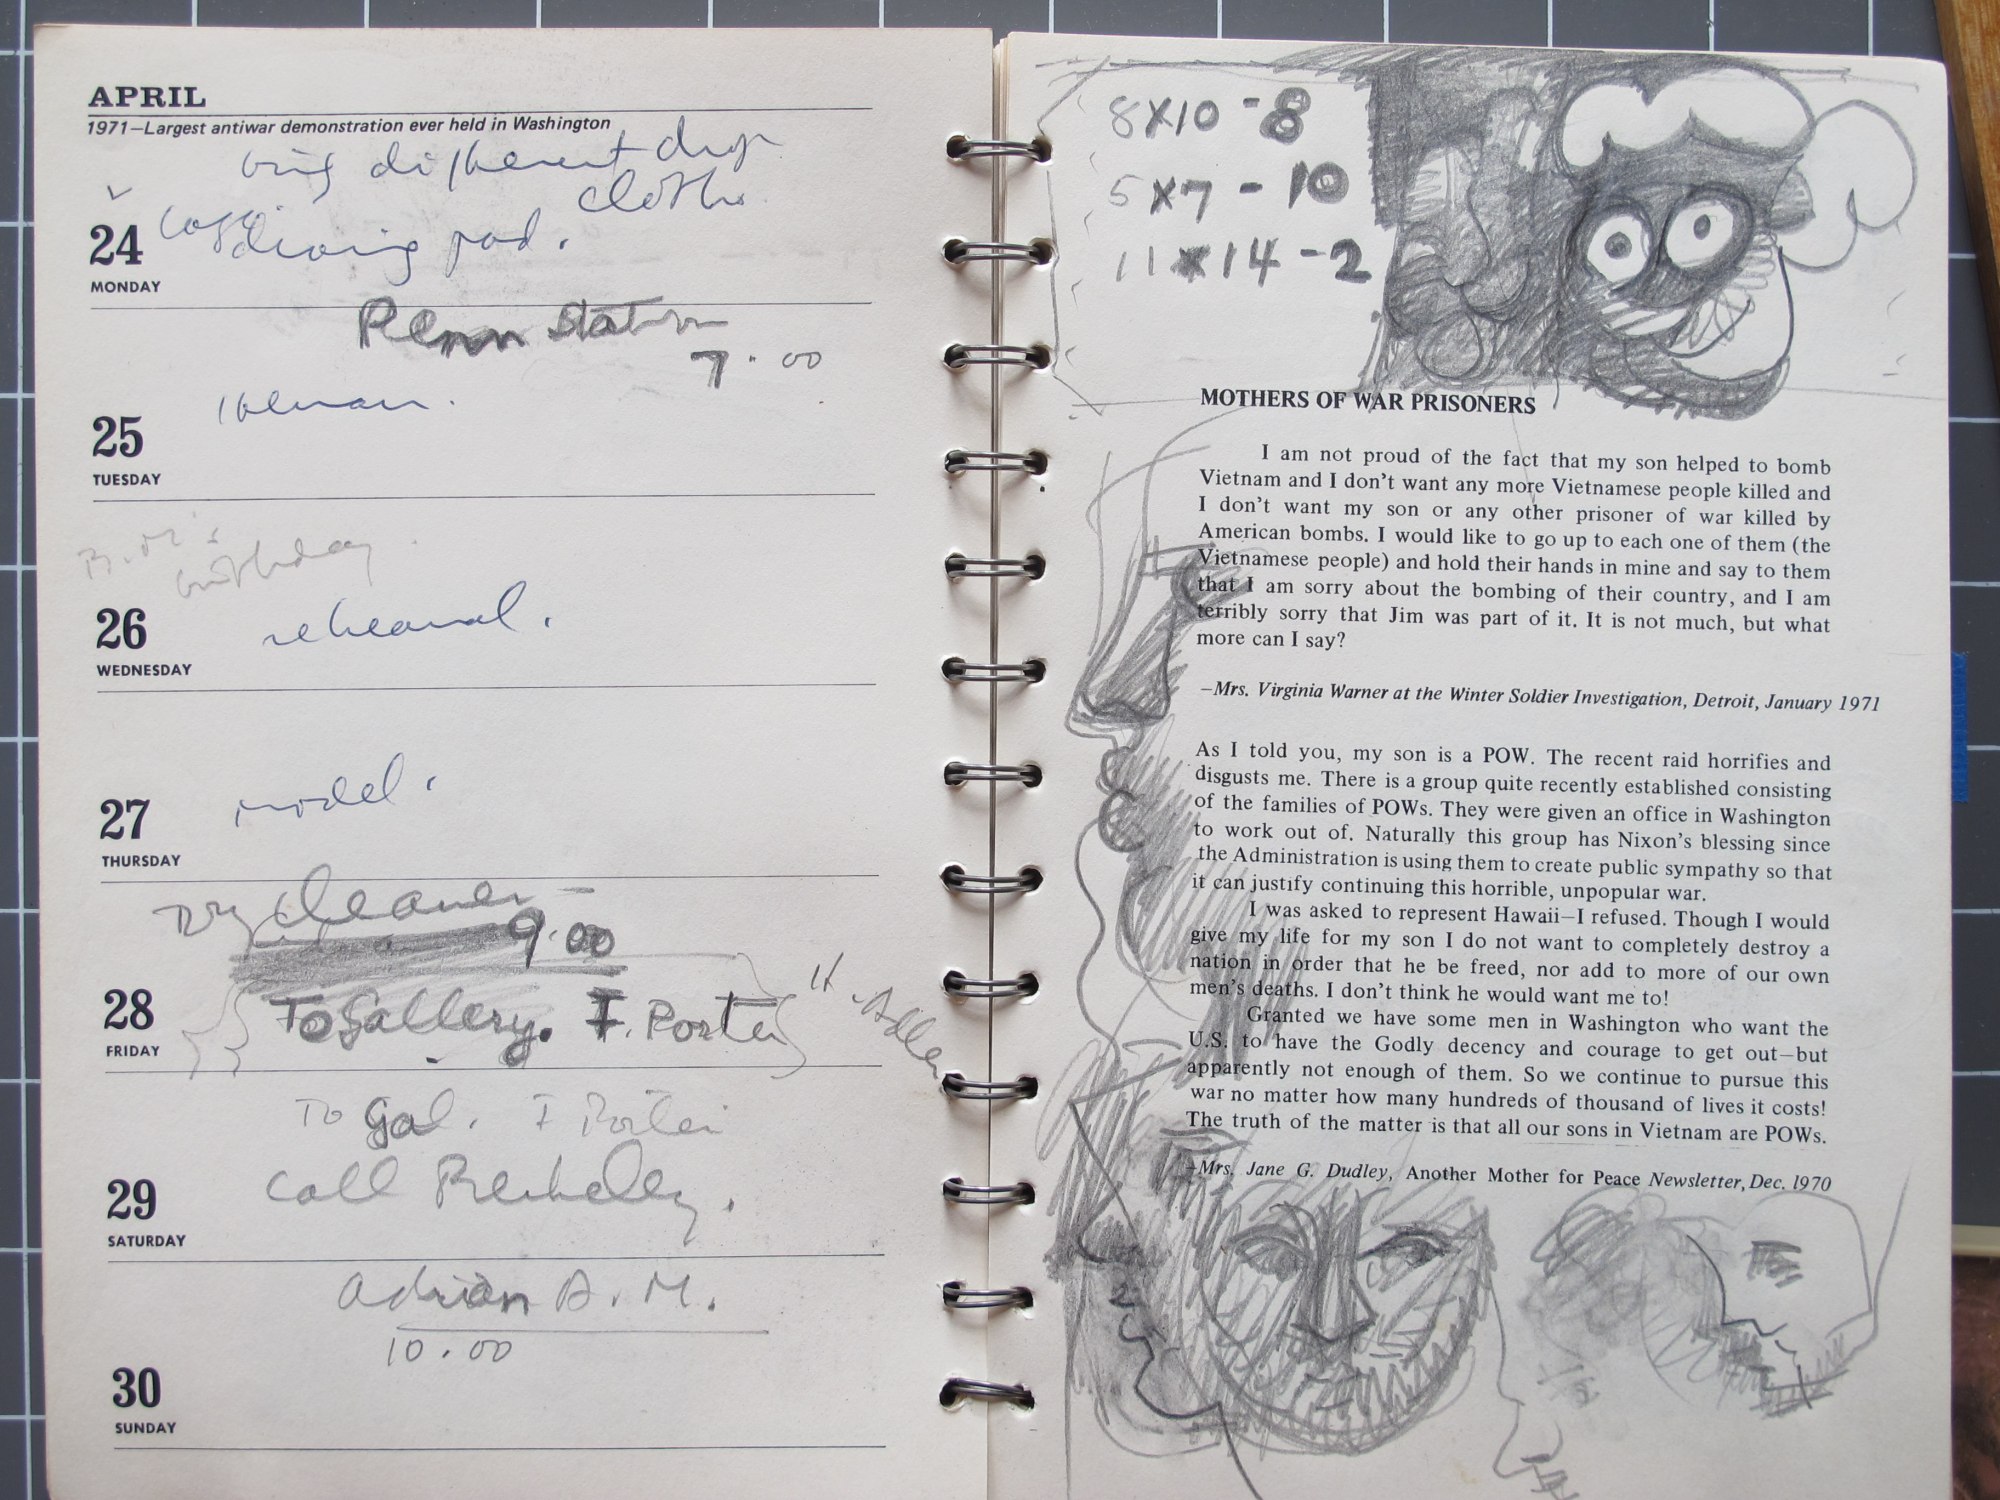 APRIL
1971—Largest antiwar demonstration ever held in Washington
different drop
cloths.
24
pad.
MONDAY
Penn Station
7.00
25
TUESDAY
B.M's
birthday.
26
rehearsal.
WEDNESDAY
27
model.
THURSDAY
Dry cleaner
9.00
28
To Gallery. F. Porter
H. Adler
FRIDAY
To Gal. F Porter
call Berkeley.
29
SATURDAY
Adrian B. M.
10.00
30
SUNDAY
8x10 - 8
5x7 - 10
11x14 - 2
MOTHERS OF WAR PRISONERS
I am not proud of the fact that my son helped to bomb
Vietnam and I don't want any more Vietnamese people killed and
I don't want my son or any other prisoner of war killed by
American bombs. I would like to go up to each one of them (the
Vietnamese people) and hold their hands in mine and say to them
that I am sorry about the bombing of their country, and I am
terribly sorry that Jim was part of it. It is not much, but what
more can I say?
—Mrs. Virginia Warner at the Winter Soldier Investigation, Detroit, January 1971
As I told you, my son is a POW. The recent raid horrifies and
disgusts me. There is a group quite recently established consisting
of the families of POWs. They were given an office in Washington
to work out of. Naturally this group has Nixon's blessing since
the Administration is using them to create public sympathy so that
it can justify continuing this horrible, unpopular war.
I was asked to represent Hawaii—I refused. Though I would
give my life for my son I do not want to completely destroy a
nation in order that he be freed, nor add to more of our own
men's deaths. I don't think he would want me to!
Granted we have some men in Washington who want the
U.S. to have the Godly decency and courage to get out—but
apparently not enough of them. So we continue to pursue this
war no matter how many hundreds of thousand of lives it costs!
The truth of the matter is that all our sons in Vietnam are POWs.
—Mrs. Jane G. Dudley, Another Mother for Peace Newsletter, Dec. 1970